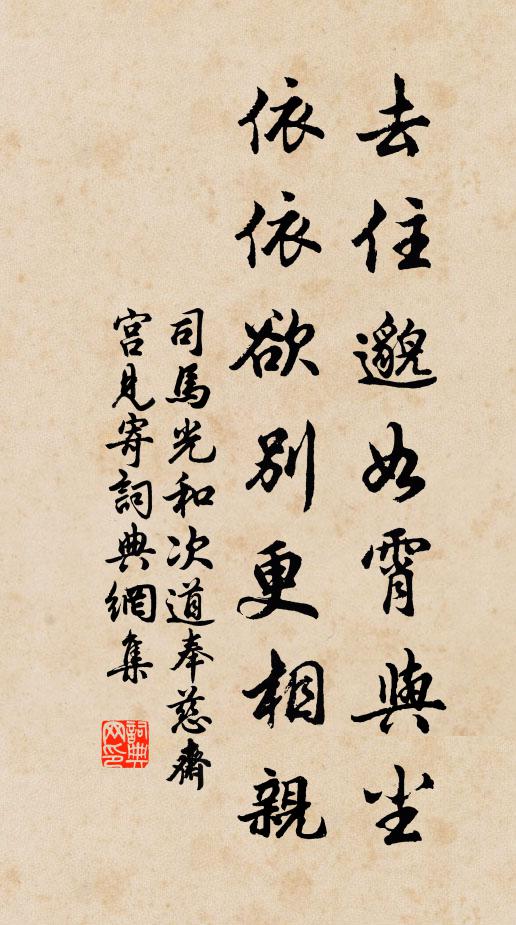 去住邈如霄與坐
依依欲别更相親
司馬光和次道奉慈齋
宫見寄詞典網集
詞典
网印